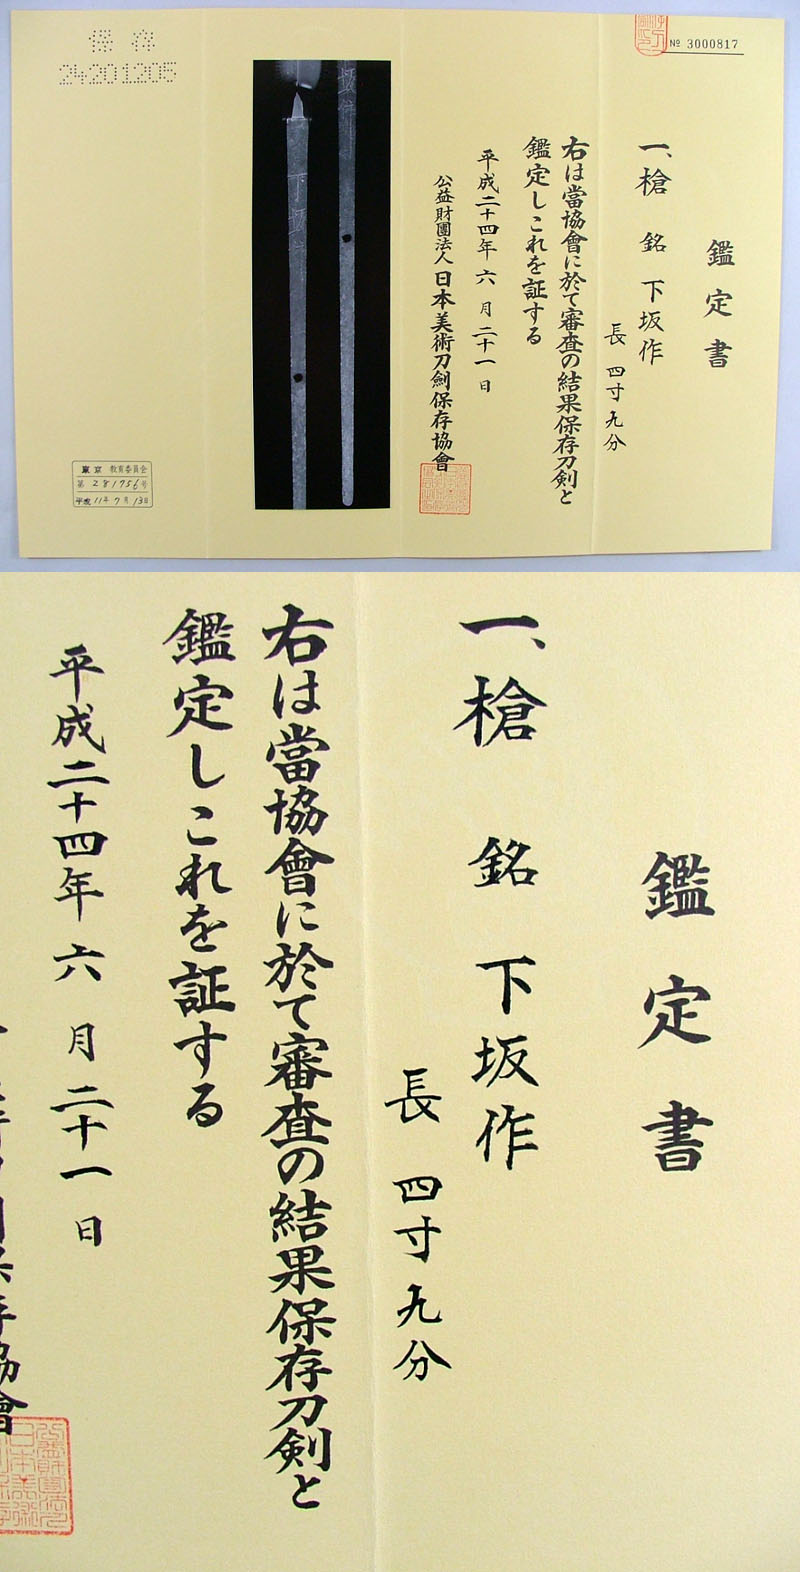 № 3000817
鑑定書
一、槍 銘 下坂作
長 四寸九分
右は當協會に於て審査の結果保存刀剣と
鑑定しこれを証する
平成二十四年 六 月 二十一 日
公益財團法人 日本美術刀剣保存協會
下坂作
保存
24201205
東京 教育委員会
第 281756号
平成 11年 7月 13日
鑑定書
一、槍 銘 下坂作
長 四寸九分
右は當協會に於て審査の結果保存刀剣と
鑑定しこれを証する
平成二十四年 六 月 二十一 日